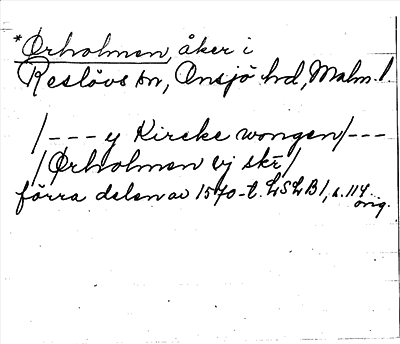 *Ørholmen, åker i
Reslövs sn, Onsjö hd, Malm. l
/--- y Kircke wongen/---
/Ørholmen vj skr̄/
förra delen av 1570-t. LSLB1, s. 114
orig.